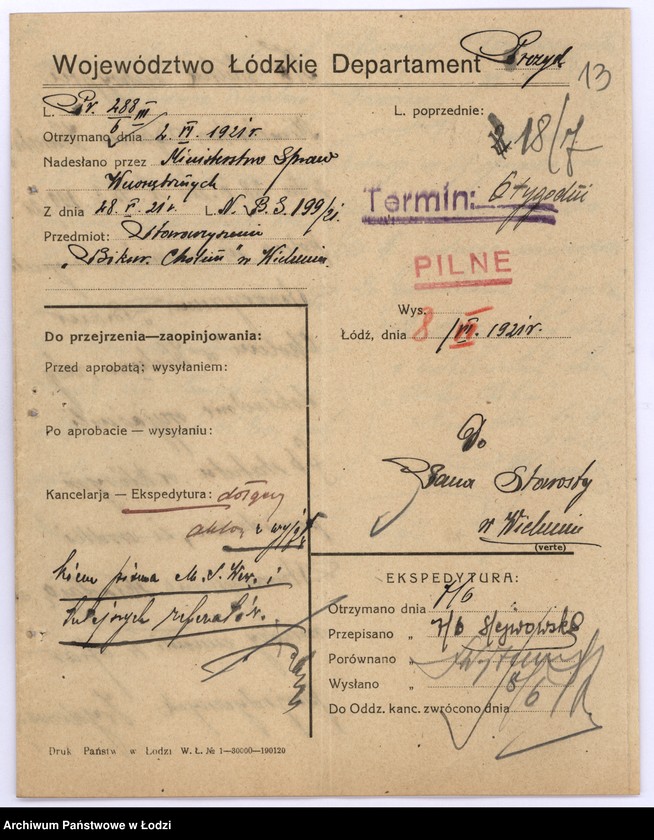 Województwo Łódzkie Departament Prezyd
13
L. Pr. 288/III
6
Otrzymano dnia 2. VI. 1921 r.
Nadesłano przez Ministerstwo Spraw
Wewnętrznych
Z dnia 28. V. 21 r. L. N. B. S. 199/21.
Przedmiot: Stowarzyszenie
„Bikur. Cholim” w Wieluniu.
L. poprzednie:
18/7
Termin: 6 tygodni
PILNE
Wys.
Łódź, dnia 8 /VI. 1921 r.
Do przejrzenia—zaopinjowania:
Przed aprobatą: wysyłaniem:
Po aprobacie — wysyłaniu:
Kancelarja — Ekspedytura: dołączy
aktów z wyjąt
kiem pisma M. S. Wew. i
tutejszych referatów.
Do
Pana Starosty
w Wieluniu
(verte)
EKSPEDYTURA:
Otrzymano dnia 7/6
Przepisano „ 7/6
Porównano „
Wysłano „ 8/6
Do Oddz. kanc. zwrócono dnia
Druk Państw w Łodzi W. Ł. № 1—30000—190120
Archiwum Państwowe w Łodzi